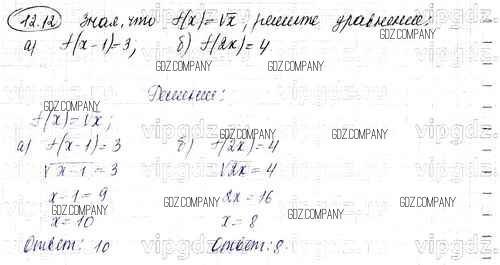 12.12 Зная, что f(x)=√x, решите уравнение:
а) f(x-1)=3, б) f(2x)=4
GDZ.COMPANY
Решение:
f(x)=√x;
а) f(x-1)=3 б) f(2x)=4
√x-1=3 √2x=4
x-1=9 2x=16
x=10 x=8
Ответ: 10 Ответ: 8.
GDZ.COMPANY
GDZ.COMPANY
GDZ.COMPANY
GDZ.COMPANY
GDZ.COMPANY
GDZ.COMPANY
GDZ.COMPANY
GDZ.COMPANY
vipgdz.ru
vipgdz.ru
vipgdz.ru